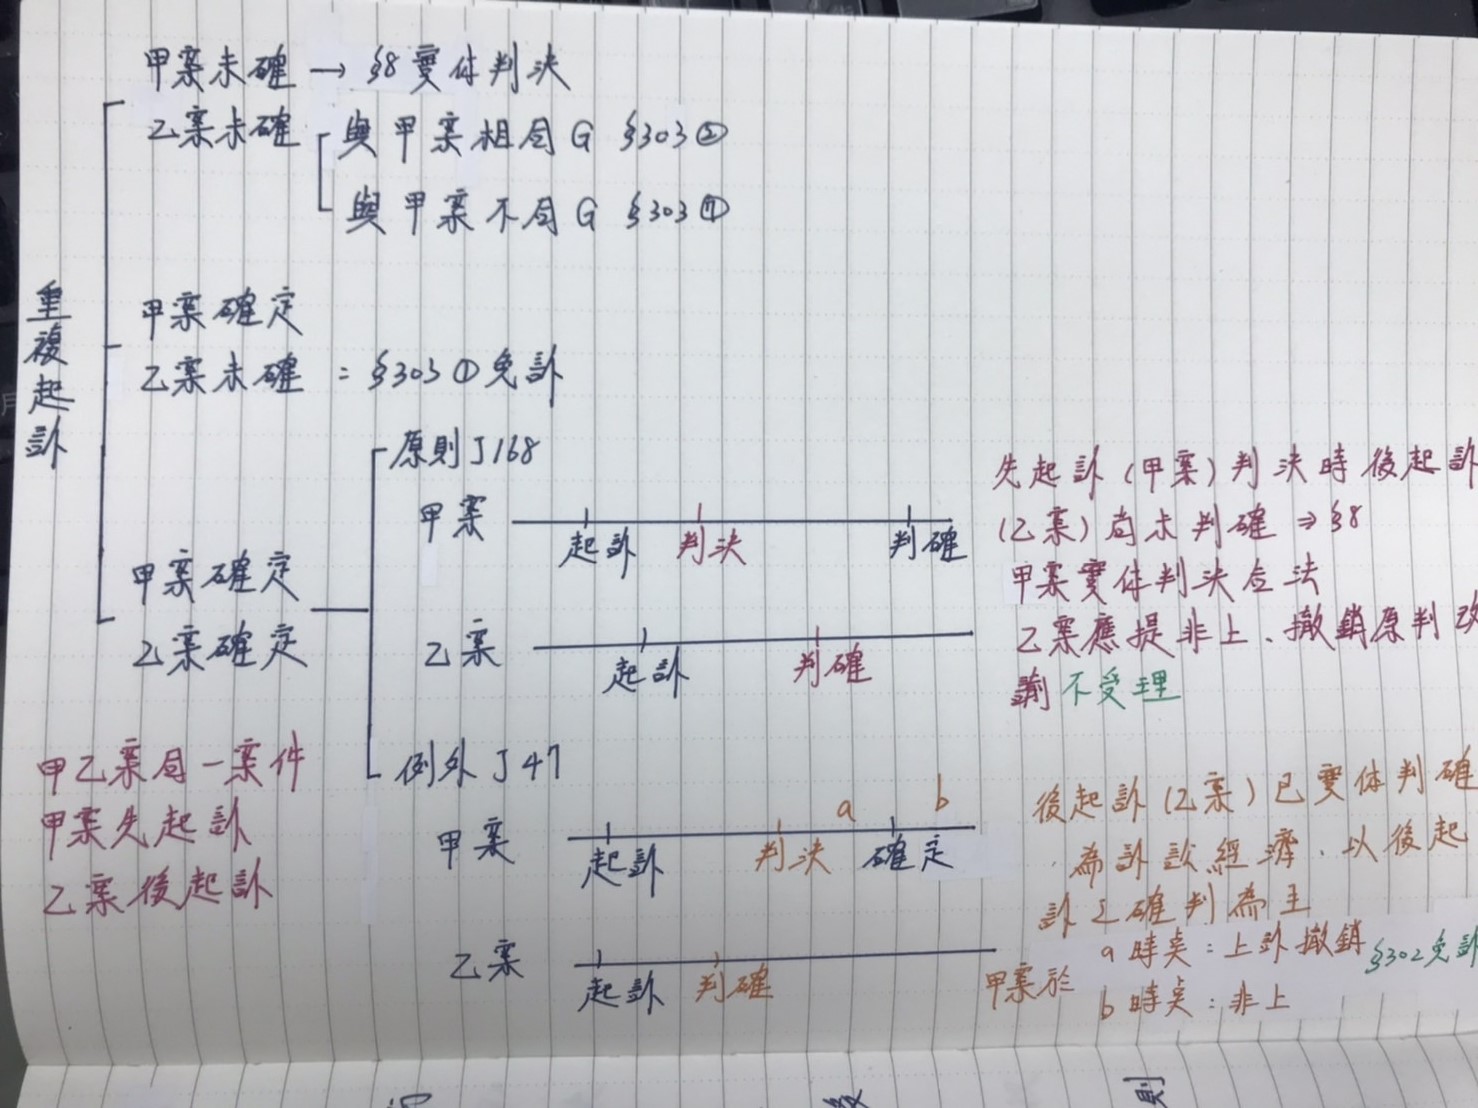 重複起訴
甲案未確 → §8 實体判決
乙案未確
與甲案相同G §303②
與甲案不同G §303⑦
甲案確定
乙案未確 = §303①免訴
甲案確定
乙案確定
原則 J168
甲案
起訴 判決 判確
乙案
起訴 判確
先起訴(甲案)判決時後起訴
(乙案)尚未判確 ⇒ §8
甲案實体判決合法
乙案應提非上、撤銷原判改
諭不受理
例外 J47
a b
甲案
起訴 判決 確定
乙案
起訴 判確
後起訴(乙案)已實体判確
為訴訟經濟、以後起
訴之確判為主
甲案於
a時点:上訴撤銷 §302免訴
b時点:非上
甲乙案同一案件
甲案先起訴
乙案後起訴
則